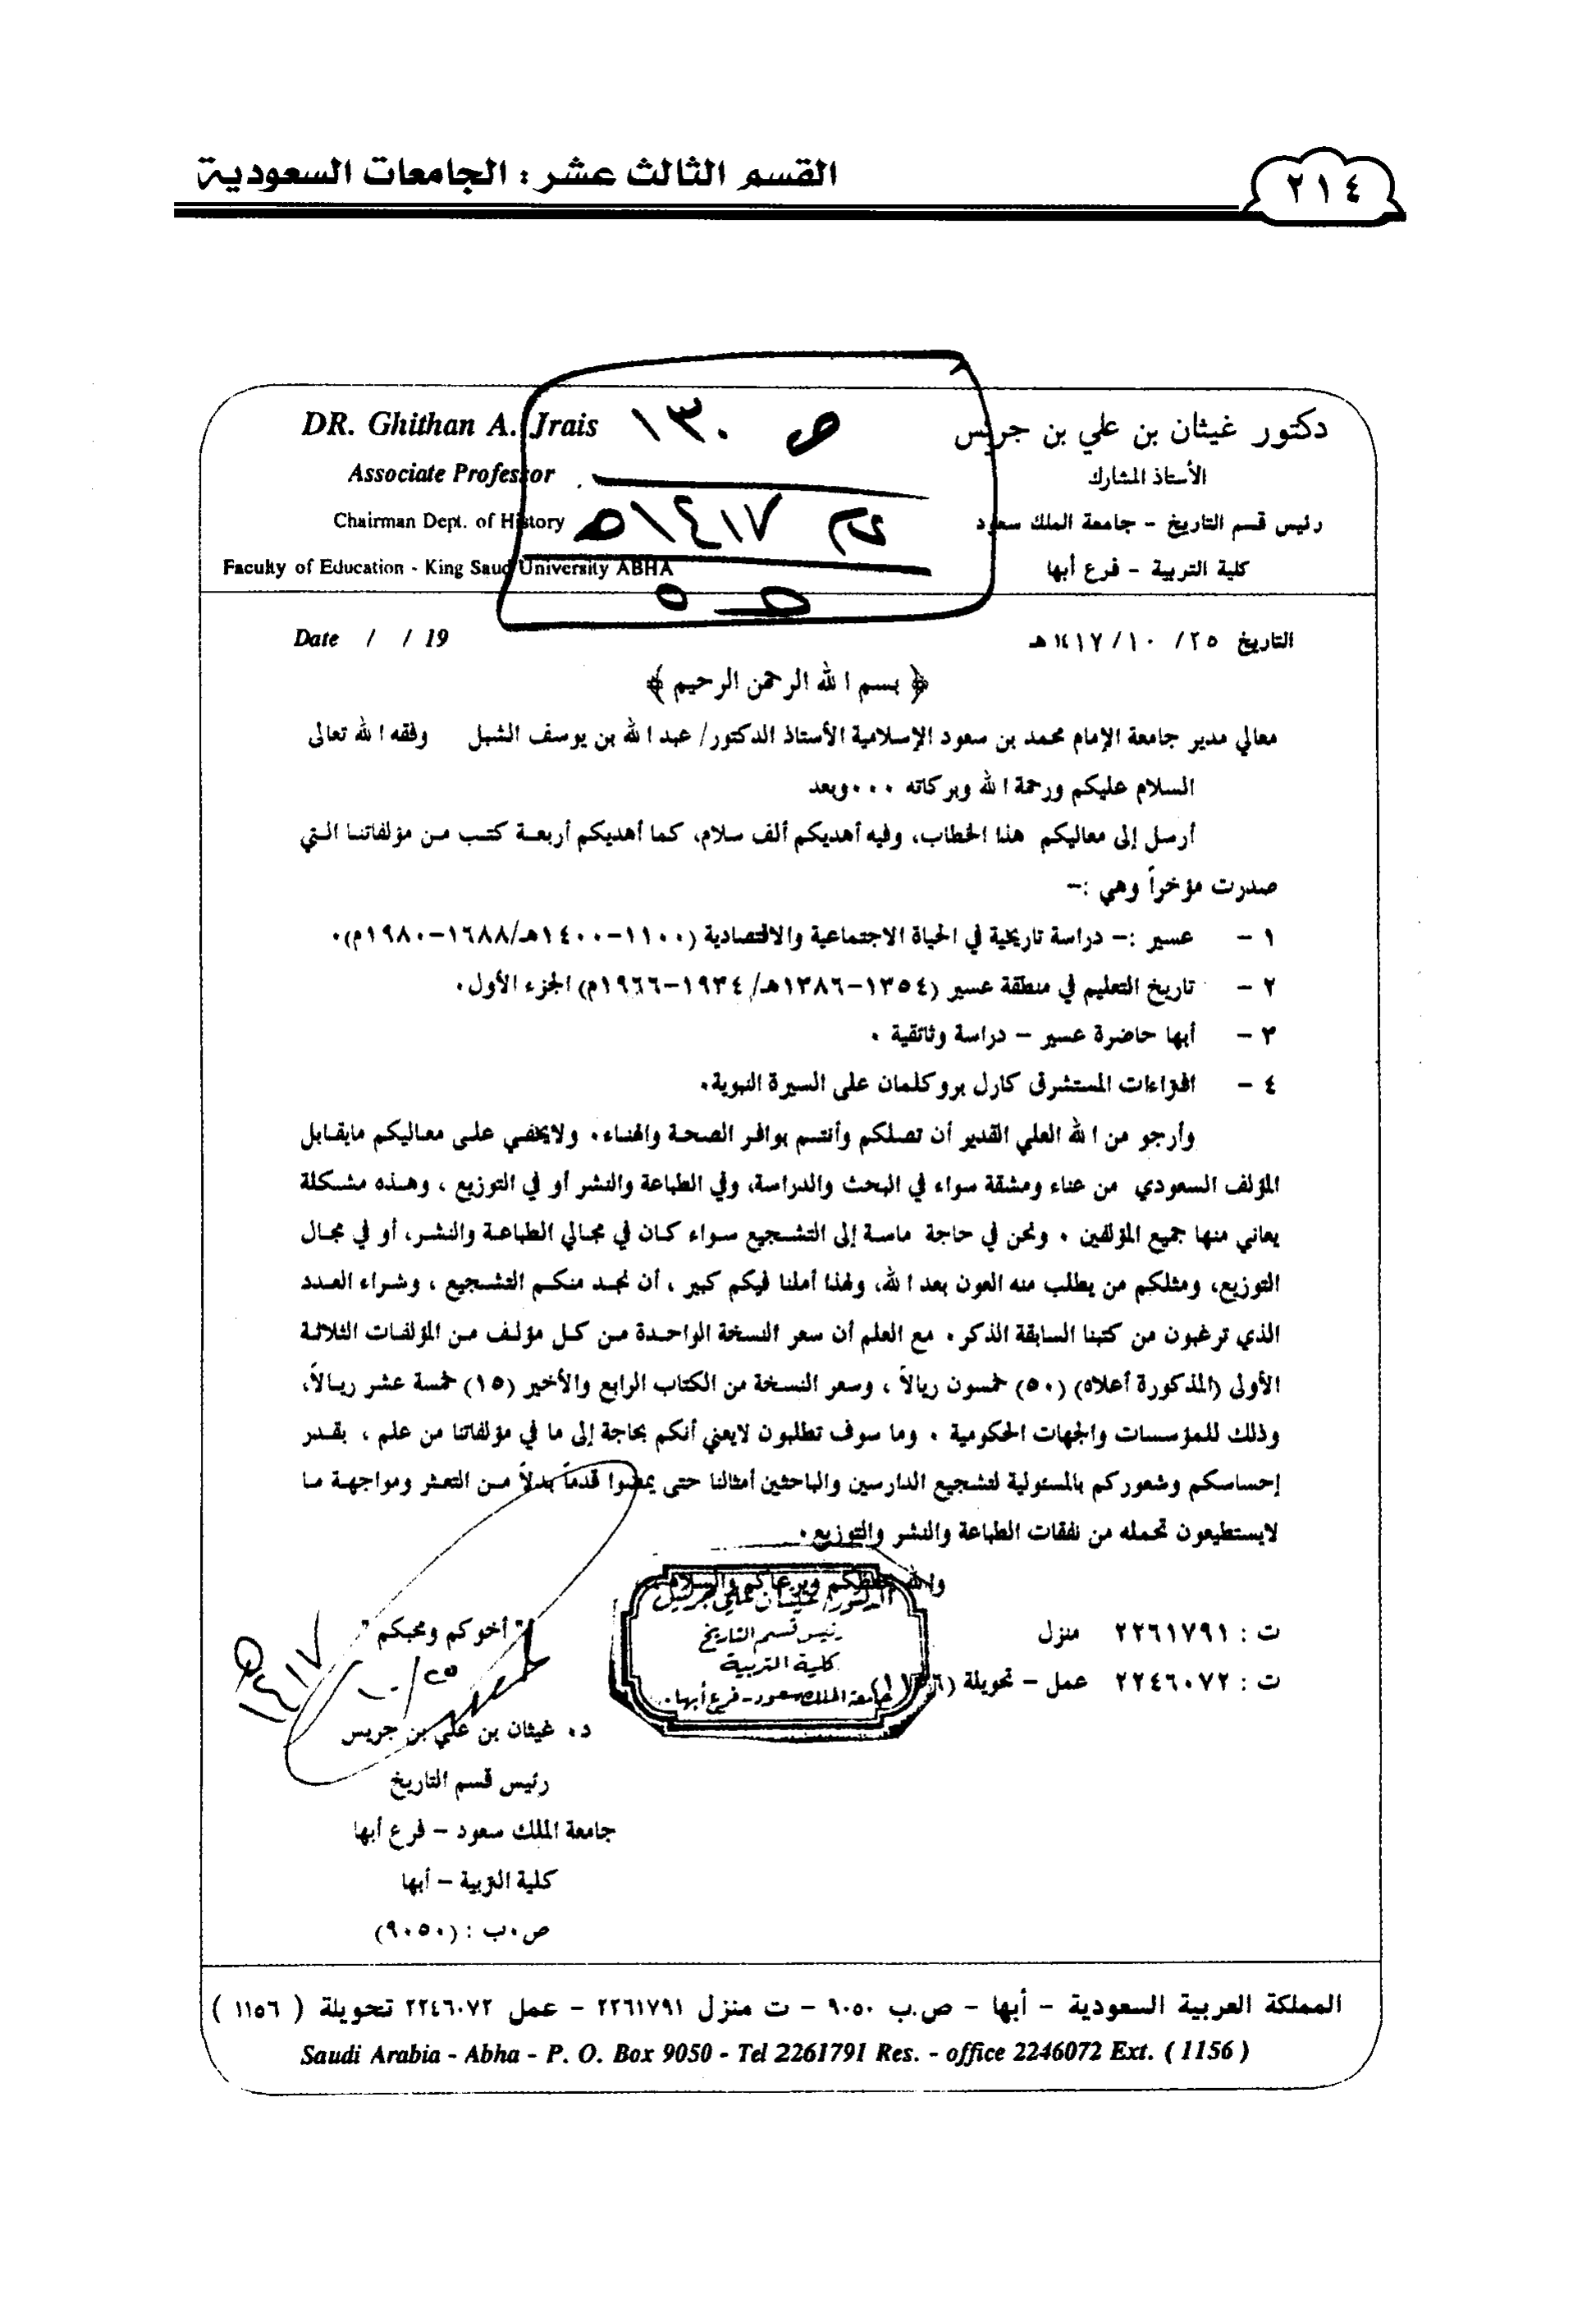 القسم الثالث عشر : الجامعات السعودية
٢١٤
دكتور غيثان بن علي بن جريس
الأستاذ المشارك
رئيس قسم التاريخ – جامعة الملك سعود
كلية التربية – فرع أبها
DR. Ghithan A. Jrais
Associate Professor
Chairman Dept. of History
Faculty of Education - King Saud University ABHA
ص ١٣٠
١٤١٧هـ
التاريخ ٢٥/ ١٠/ ١٤١٧هـ
Date / / 19
﴿ بسم الله الرحمن الرحيم ﴾
معالي مدير جامعة الإمام محمد بن سعود الإسلامية الأستاذ الدكتور/ عبد الله بن يوسف الشبل وفقه الله تعالى
السلام عليكم ورحمة الله وبركاته ٠٠٠ وبعد
أرسل إلى معاليكم هذا الخطاب، وفيه أهديكم ألف سلام، كما أهديكم أربعة كتب من مؤلفاتنا التي
صدرت مؤخراً وهي :–
١ – عسير :– دراسة تاريخية في الحياة الاجتماعية والاقتصادية (١١٠٠–١٤٠٠هـ/١٦٨٨–١٩٨٠م).
٢ – تاريخ التعليم في منطقة عسير (١٣٥٤–١٣٨٦هـ/ ١٩٣٤–١٩٦٦م) الجزء الأول.
٣ – أبها حاضرة عسير – دراسة وثائقية .
٤ – افتراءات المستشرق كارل بروكلمان على السيرة النبوية.
وأرجو من الله العلي القدير أن تصلكم وأنتم بوافر الصحة والهناء. ولايخفي على معاليكم مايقابل
المؤلف السعودي من عناء ومشقة سواء في البحث والدراسة، وفي الطباعة والنشر أو في التوزيع ، وهذه مشكلة
يعاني منها جميع المؤلفين . ونحن في حاجة ماسة إلى التشجيع سواء كان في مجالي الطباعة والنشر، أو في مجال
التوزيع، ومثلكم من يطلب منه العون بعد الله، ولهذا أملنا فيكم كبير ، أن نجد منكم التشجيع ، وشراء العدد
الذي ترغبون من كتبنا السابقة الذكر. مع العلم أن سعر النسخة الواحدة من كل مؤلف من المؤلفات الثلاثة
الأولى (المذكورة أعلاه) (٥٠) خمسون ريالاً ، وسعر النسخة من الكتاب الرابع والأخير (١٥) خمسة عشر ريالاً،
وذلك للمؤسسات والجهات الحكومية . وما سوف تطلبون لايعني أنكم بحاجة إلى ما في مؤلفاتنا من علم ، بقدر
إحساسكم وشعوركم بالمسئولية لتشجيع الدارسين والباحثين أمثالنا حتى يمضوا قدماً بدلاً من التعثر ومواجهة ما
لايستطيعون تحمله من نفقات الطباعة والنشر والتوزيع.
والله يحفظكم ويرعاكم والسلام
الدكتور/ غيثان علي جريس
رئيس قسم التاريخ
كلية التربية
جامعة الملك سعود – فرع أبها.
ت : ٢٢٦١٧٩١ منزل
ت : ٢٢٤٦٠٧٢ عمل – تحويلة
" أخوكم ومحبكم "
١٠/٢٥
١٤١٧هـ
د. غيثان بن علي بن جريس
رئيس قسم التاريخ
جامعة الملك سعود – فرع أبها
كلية التربية – أبها
ص.ب : (٩٠٥٠)
المملكة العربية السعودية – أبها – ص.ب ٩٠٥٠ – ت منزل ٢٢٦١٧٩١ – عمل ٢٢٤٦٠٧٢ تحويلة ( ١١٥٦ )
Saudi Arabia - Abha - P. O. Box 9050 - Tel 2261791 Res. - office 2246072 Ext. ( 1156 )